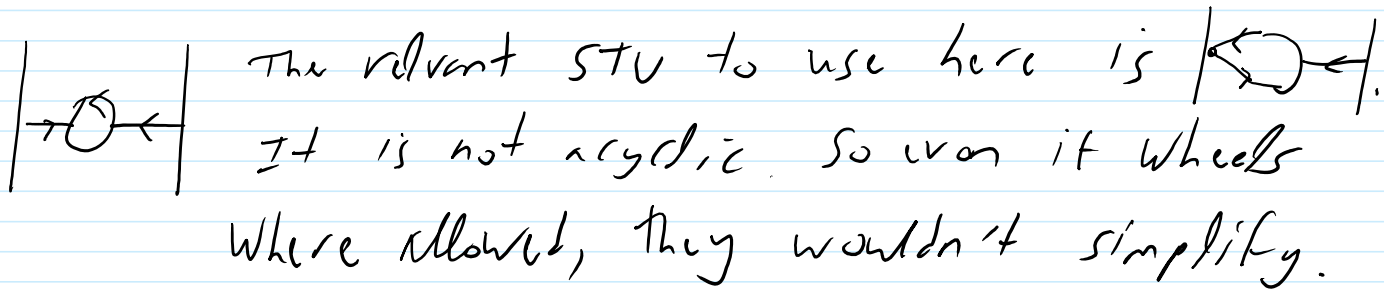 The relvant STU to use here is .
It is not acyclic. So even if wheels
where allowed, they wouldn't simplify.